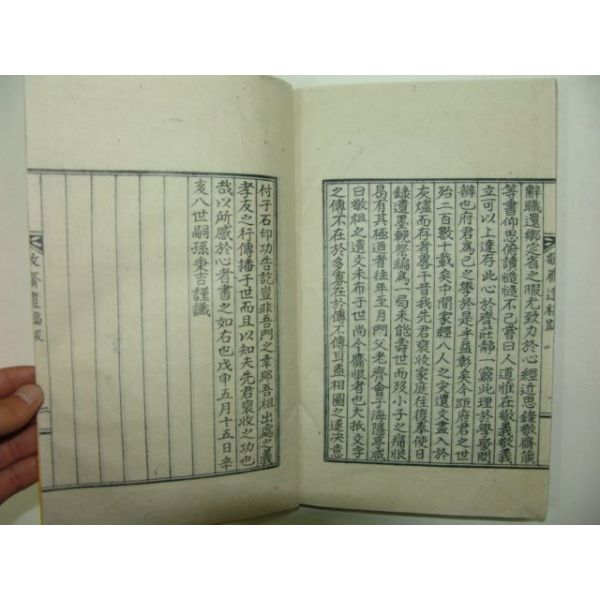 辭職還鄉定省之暇尤致力於心經近思錄敬齋箴
等書仰思俯讀慥慥不已嘗曰人道惟在敬義敬義
立可以上達存此心於齊莊靜一窮此理於學學問
辨也府君爲己之學於是乎益彰矣今距府君之世
殆二百數十載矣中間家經八人之灾遺文盡入於
灰燼而存者畧干昔我先君裒收家庭往復奉使日
錄遺墨輓祭編爲一局未能壽世而歿小子之痛恨
曷有其極迺者往年至月門父老齊會于海隱亭咸
曰敬祖之遺文未布于世尚今齎恨者也大抵文字
之傳不在於多寡在於傳不傳耳盍相圖之遂决意
付于石印功告訖豈非吾門之幸耶吾祖出處之義
孝友之行傳播于世而且以知夫先君裒收之功也
哉以所感於心者書之如右也戊申五月十五日辛
亥八世嗣孫秉吉謹識